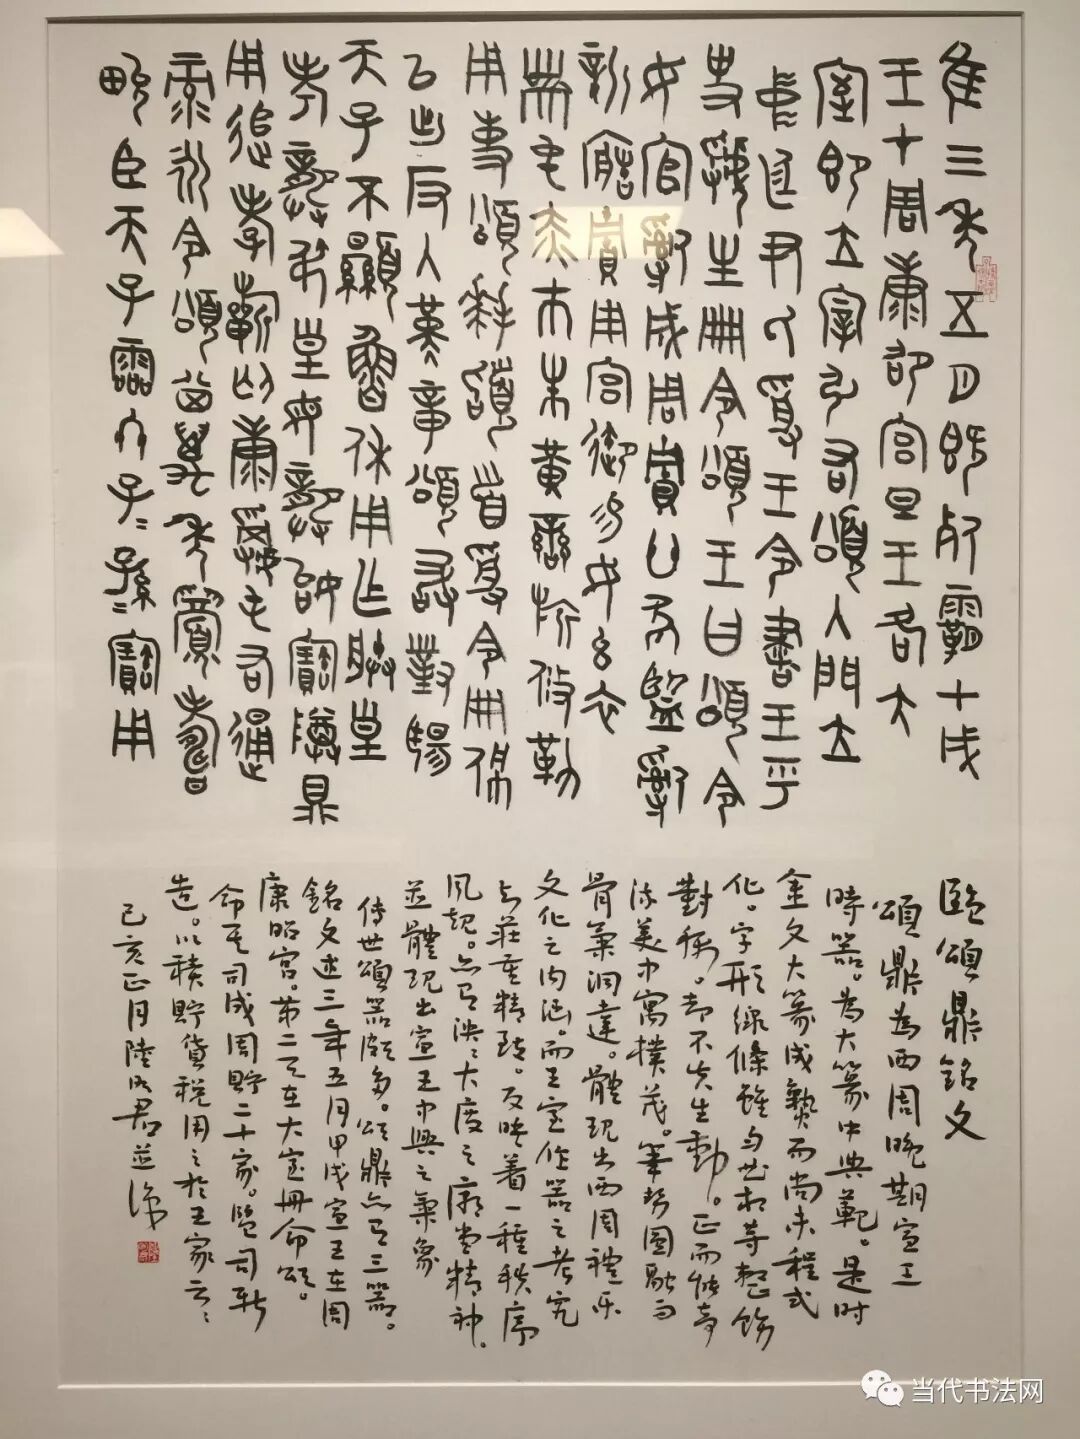 隹三年五月既死霸甲戌
王才周康卲宮旦王各大
室即立宰弘右頌入門立
中廷尹氏受王令書王乎
史虢生冊令頌王曰頌令
女官𤔲成周貯廿家監𤔲
新造貯用宮御易女玄衣
黹屯赤巿朱黃䜌旂攸勒
用事頌拜稽首受令冊佩
以出反入堇章頌敢對揚
天子不顯魯休用乍朕皇
考龏弔皇母龏姒寶尊鼎
用追孝祈匄康屯右通
彔永令頌其萬年眉壽
畯臣天子霝冬子〻孫〻寶用
臨頌鼎銘文
頌鼎為西周晚期宣王
時器。為大篆中典範。是時
金文大篆成熟而尚未程式
化。字形線條雖勻齊相等整飭
對稱。卻不失生動。正而能奇
流美中寓樸茂。筆勢圓融而
骨氣洞達。體現出西周禮樂
文化之內涵。而王室作器之考究
與莊重精致。反映着一種秩序
風規。亦有泱〻大度之廟堂精神。
並體現出宣王中興之氣象
傳世頌器頗多。頌鼎亦有三器。
銘文述三年五月甲戌宣王在周
康昭宮。第二天在大室冊命頌。
命其司成周貯二十家。監司新
造。以積貯貨稅用之於王家云〻
己亥正月陸明君並識
当代书法网